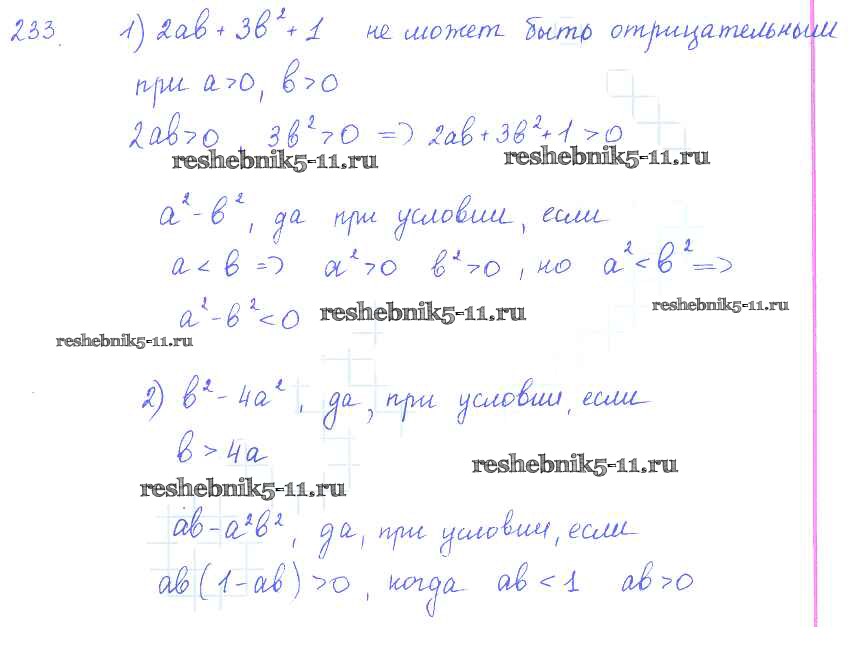 233. 1) 2ab + 3b² + 1 не может быть отрицательным
при a>0, b>0
2ab>0, 3b²>0 => 2ab+3b²+1>0
reshebnik5-11.ru reshebnik5-11.ru
a² - b², да при условии, если
a < b => a²>0 b²>0, но a²<b² =>
a² - b² < 0 reshebnik5-11.ru reshebnik5-11.ru
reshebnik5-11.ru
2) b² - 4a², да, при условии, если
b > 4a
reshebnik5-11.ru
reshebnik5-11.ru
ab - a²b², да, при условии, если
ab(1-ab)>0, когда ab<1 ab>0